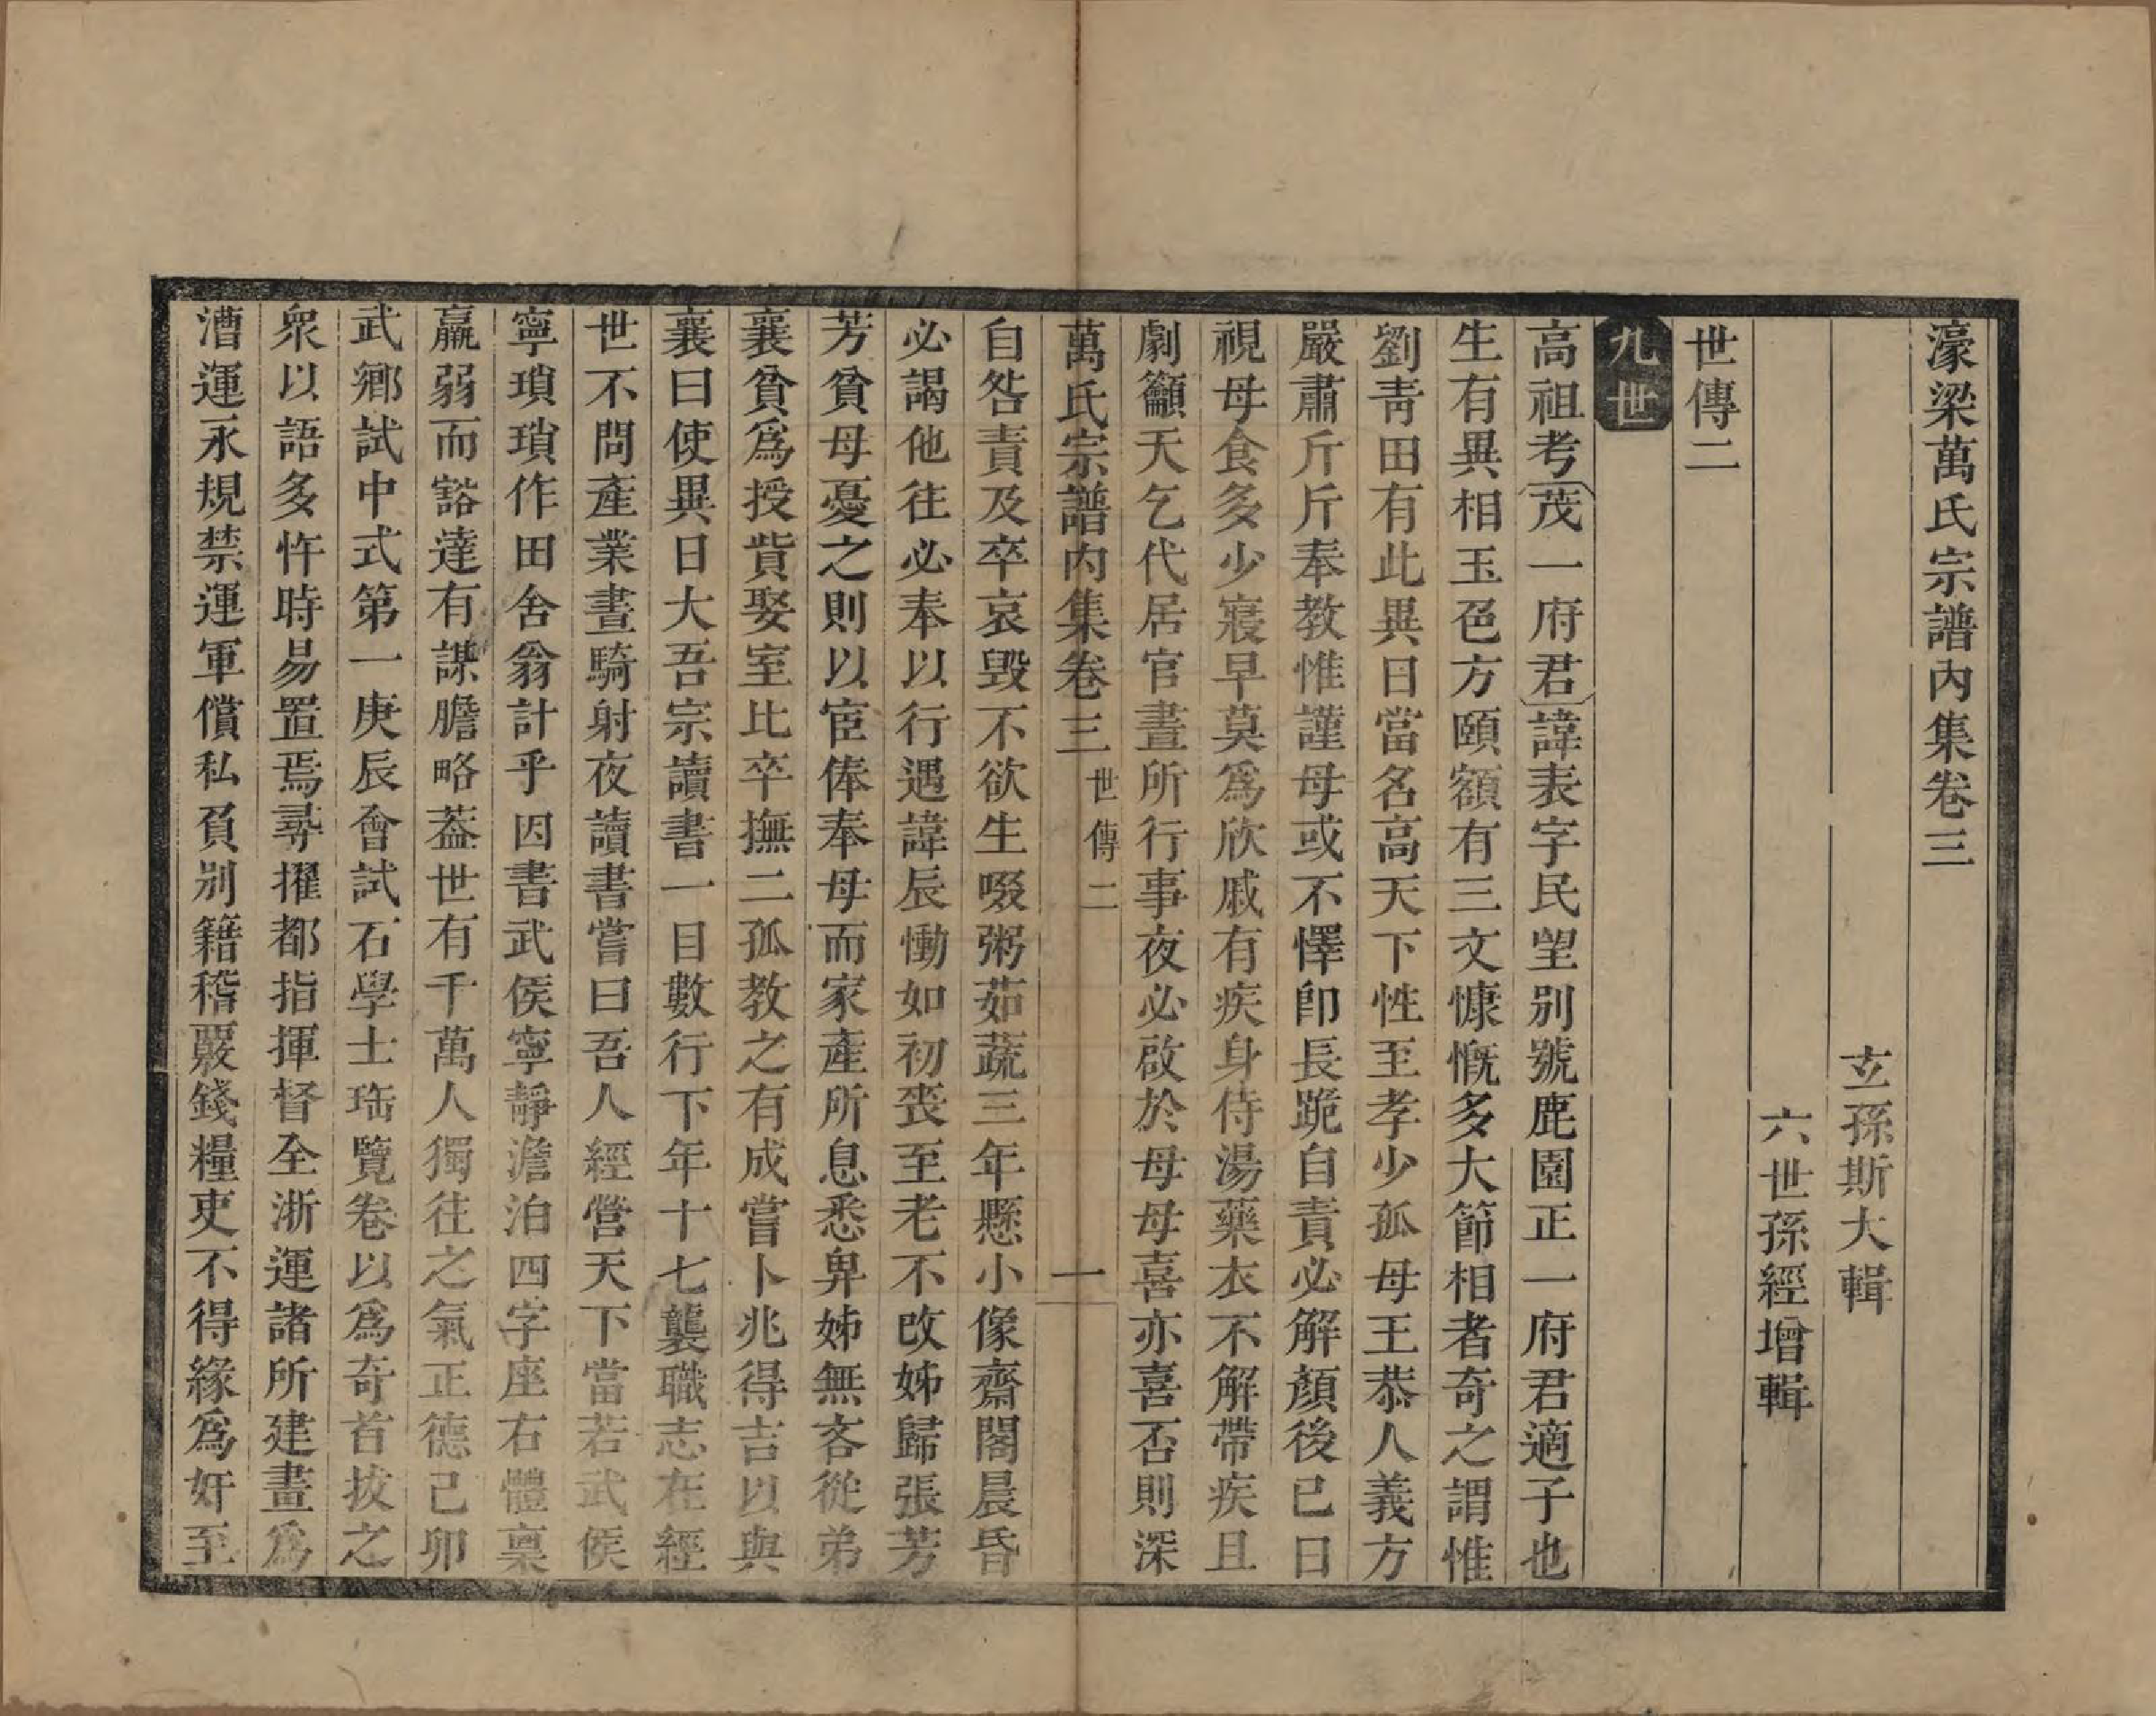 濠梁萬氏宗譜內集卷三
玄孫斯大輯
六世孫經增輯
世傳二
九世
高祖考茂一府君諱表字民望別號鹿園正一府君適子也
生有異相玉色方頤額有三文慷慨多大節相者奇之謂惟
劉青田有此異日當名高天下性至孝少孤母王恭人義方
嚴肅斤斤奉教惟謹母或不懌卽長跪自責必解顏後已日
視母食多少寢早莫爲欣戚有疾身侍湯藥衣不解帶疾且
劇籲天乞代居官晝所行事夜必啟於母母喜亦喜否則深
萬氏宗譜內集卷三 世傳二 一
自咎責及卒哀毀不欲生啜粥茹蔬三年懸小像齋閣晨昏
必謁他往必奉以行遇諱辰慟如初喪至老不改姊歸張芳
芳貧母憂之則以宦俸奉母而家產所息悉畀姊無吝從弟
襄貧爲授貲娶室比卒撫二孤教之有成嘗卜兆得吉以與
襄曰使異日大吾宗讀書一目數行下年十七襲職志在經
世不問產業晝騎射夜讀書嘗曰吾人經營天下當若武侯
寧瑣瑣作田舍翁計乎因書武侯寧靜澹泊四字座右體稟
羸弱而豁達有謀膽略蓋世有千萬人獨往之氣正德己卯
武鄉試中式第一庚辰會試石學士珤覽卷以爲奇首拔之
衆以語多忤時易置焉尋擢都指揮督全浙運諸所建畫爲
漕運永規禁運軍償私負別籍稽覈錢糧吏不得緣爲奸至